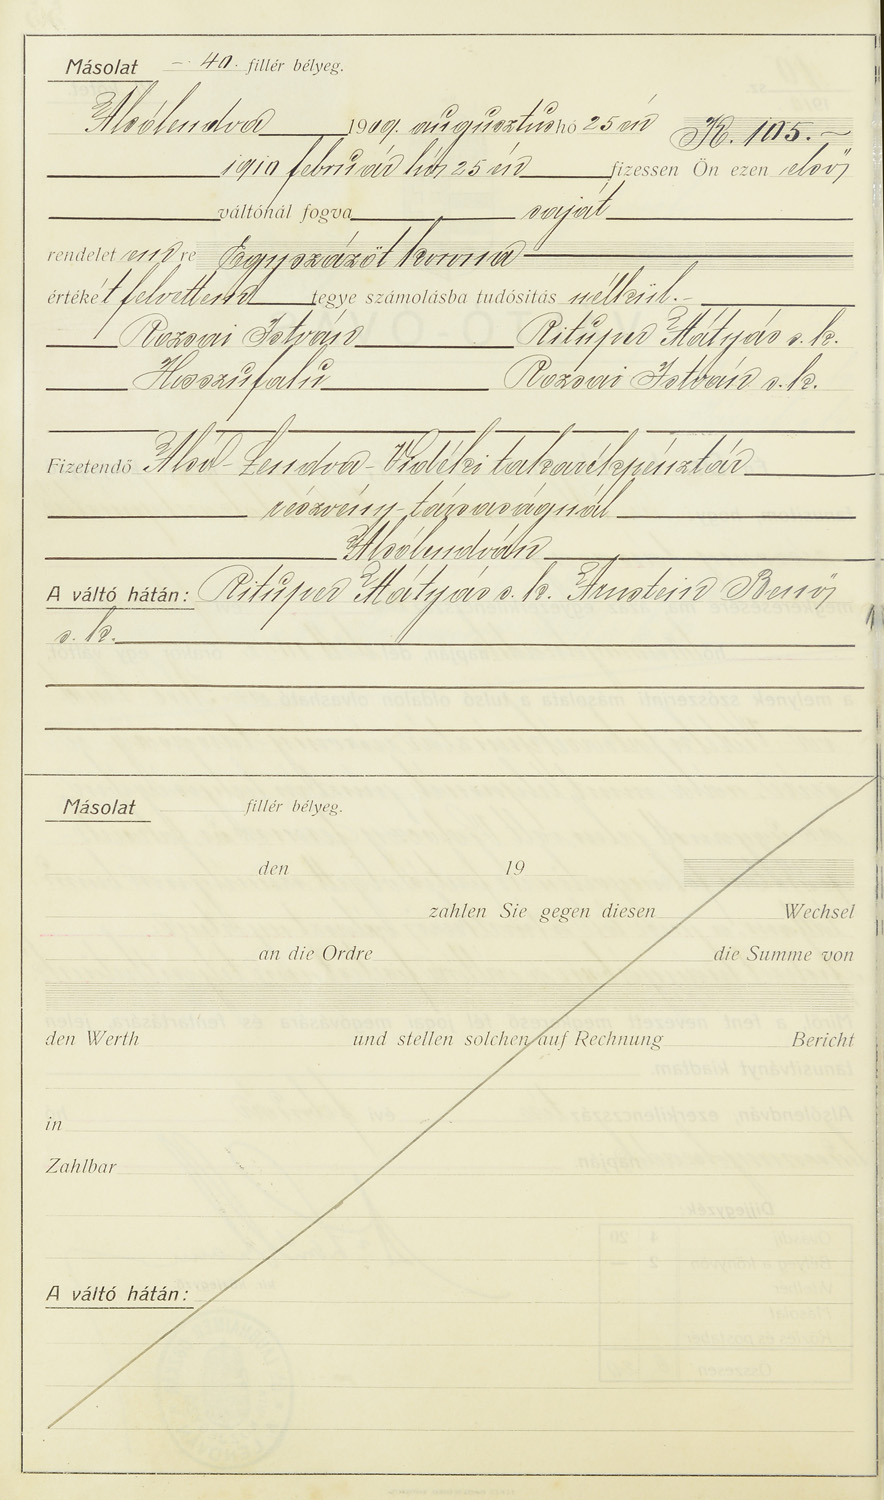 Másolat – 40. fillér bélyeg.
Alsólendva 1909. augusztus hó 25 én K. 105.–
1910 február hó 25 én fizessen Ön ezen első
váltónál fogva saját
rendelet em re Egyszázöt korona
értékét felvettem tegye számolásba tudósítás nélkül.–
Rozsai István Rituper Mátyás s. k.
Hosszufalu Rozsai István s. k.
Fizetendő Alsó-Lendva-Vidéki takarékpénztár
részvény-társaságnál
Alsólendván
A váltó hátán: Rituper Mátyás s. k. Arnstein Benő
s. k.
Másolat fillér bélyeg.
den 19
zahlen Sie gegen diesen Wechsel
an die Ordre die Summe von
den Werth und stellen solchen auf Rechnung Bericht
in
Zahlbar
A váltó hátán: